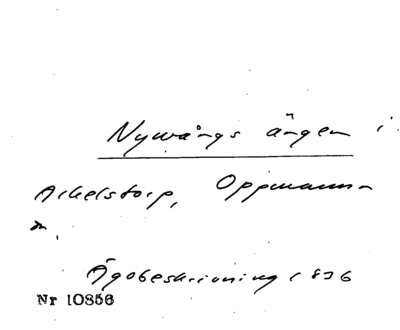 Nywångs ängen i
Arkelstorp, Oppmanna-
n.
Ägobeskrivning 1836
Nr 10856